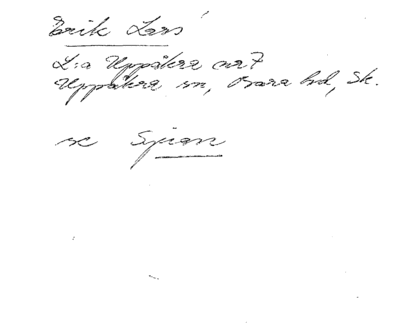 Erik Lars
L:a Uppåkra nr 7
Uppåkra sn, Bara hd, Sk.
se